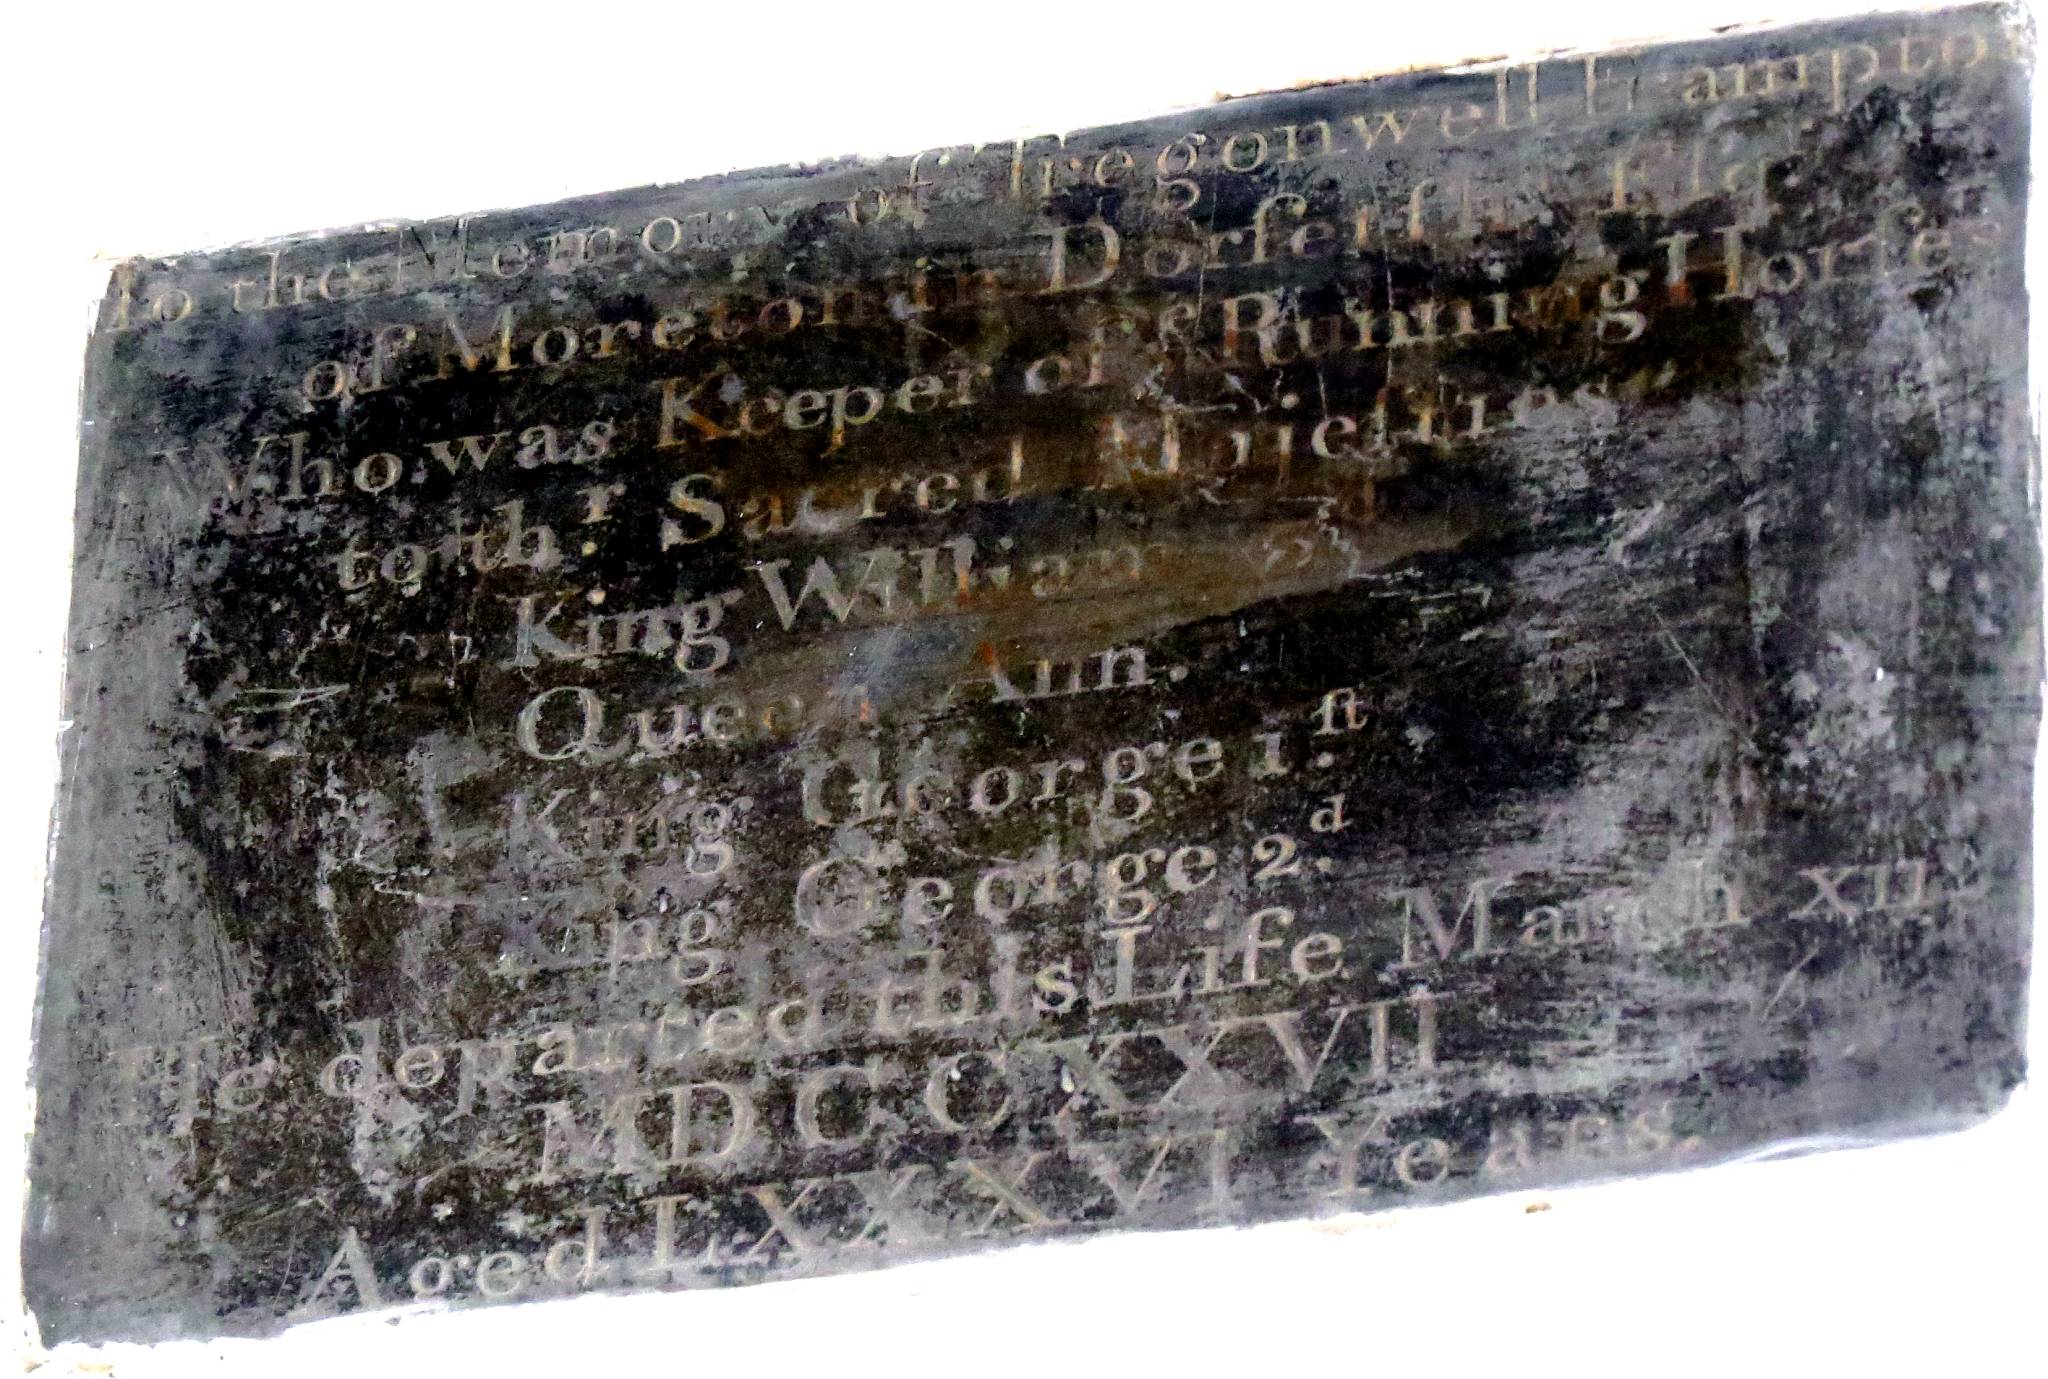 To the Memory of Tregonwell Frampton
of Moreton in Dorſetſh. Eſq.
Who was Keeper of yᵉ Running Horſes
to thʳ. Sacred Majeſties
King William
Queen Ann.
King George 1.ſt
King George 2.d
He departed this Life March XII
MDCCXXVII
Aged LXXXVI Years.